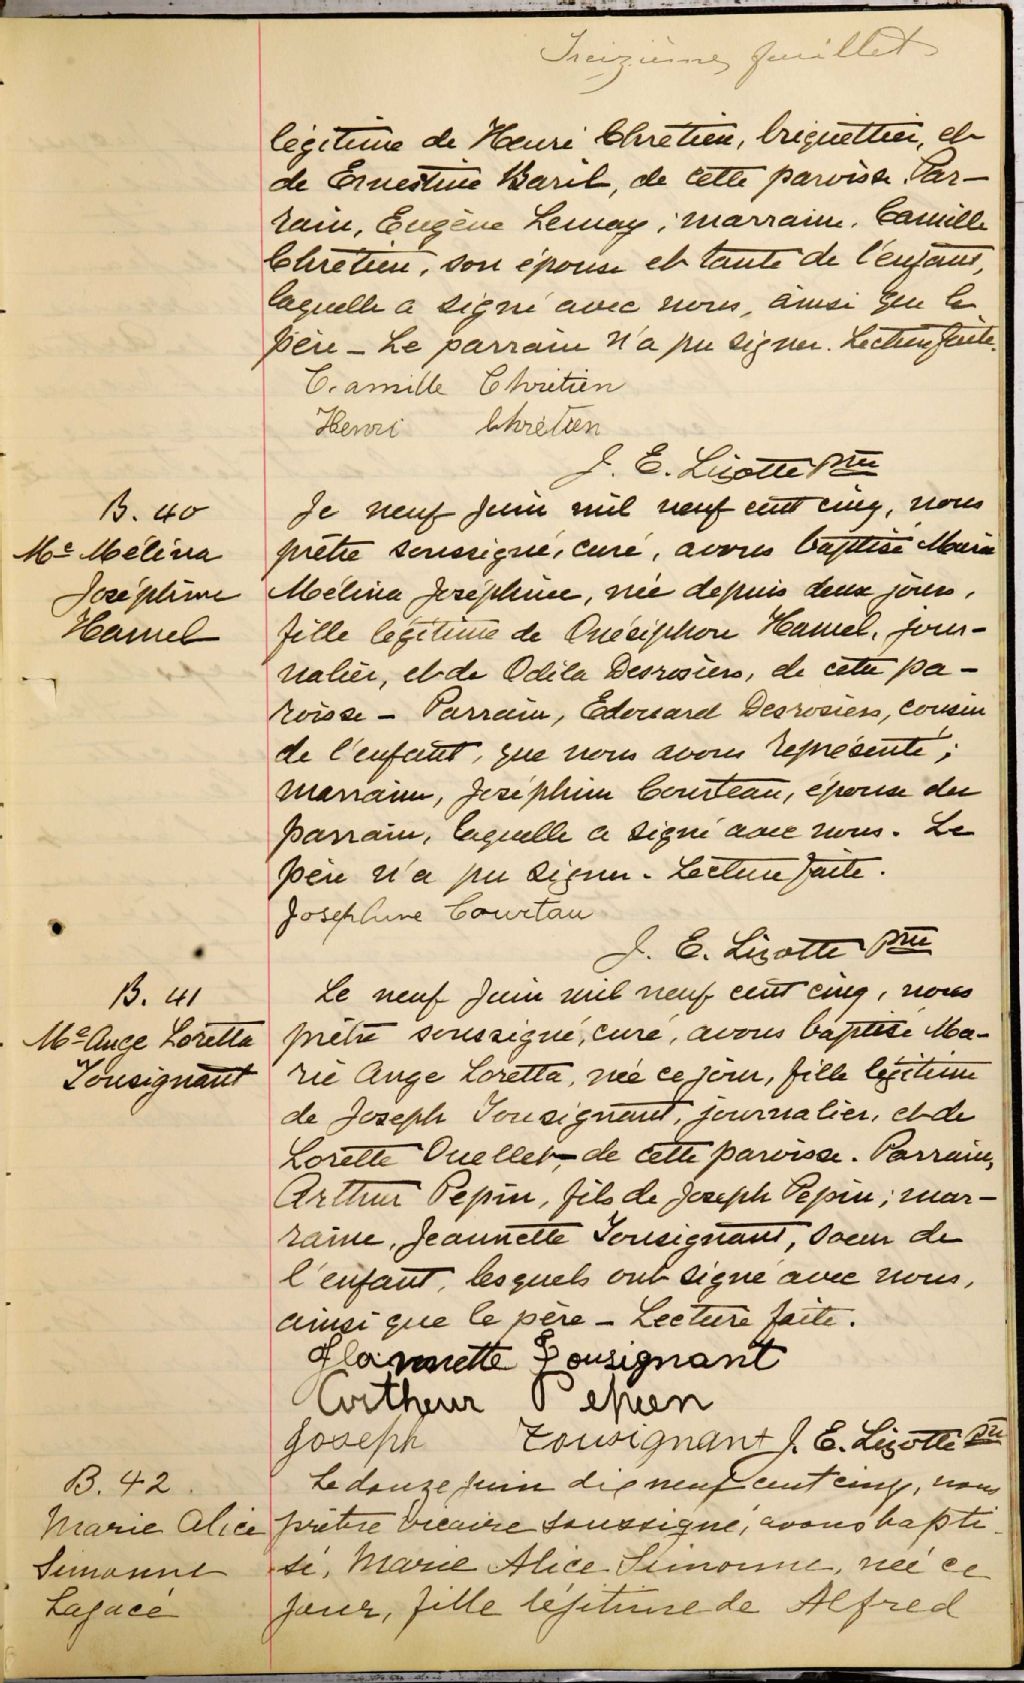 Treizième feuillet
légitime de Henri Chrétien, briquettier, et
de Ernestine Baril, de cette paroisse. Par-
rain, Eugène Lemay; marraine, Camille
Chrétien, son épouse et tante de l'enfant,
laquelle a signé avec nous, ainsi que le
père - Le parrain n'a pu signer. Lecture faite.
Camille Chrétien
Henri Chrétien
J. E. Lizotte Ptre
B. 40
Me Mélina
Joséphine
Hamel
Le neuf Juin mil neuf cent cinq, nous
prêtre soussigné, curé, avons baptisé Marie
Mélina Joséphine, née depuis deux jours,
fille légitime de Onésiphore Hamel, jour-
nalier, et de Odila Desrosiers, de cette pa-
roisse - Parrain, Edouard Desrosiers, cousin
de l'enfant, que nous avons représenté;
marraine, Joséphine Courteau, épouse du
parrain, laquelle a signé avec nous. Le
père n'a pu signer. Lecture faite.
Josephine Courtau
J. E. Lizotte Ptre
B. 41
Me Ange Loretta
Tousignant
Le neuf Juin mil neuf cent cinq, nous
prêtre soussigné, curé, avons baptisé Ma-
rie Ange Loretta, née ce jour, fille légitime
de Joseph Tousignant, journalier, et de
Lorette Ouellet, de cette paroisse. Parrain,
Arthur Pepin, fils de Joseph Pepin; mar-
raine, Jeannette Tousignant, soeur de
l'enfant, lesquels ont signé avec nous,
ainsi que le père - Lecture faite.
Tousignant
Pepien
Joseph Tousignant J. E. Lizotte Ptre
B. 42
Marie Alice
Simonne
Lagacé
Le douze juin dix neuf cent cinq, nous
prêtre vicaire soussigné, avons bapti-
sé, Marie Alice Simonne, née ce
jour, fille légitime de Alfred